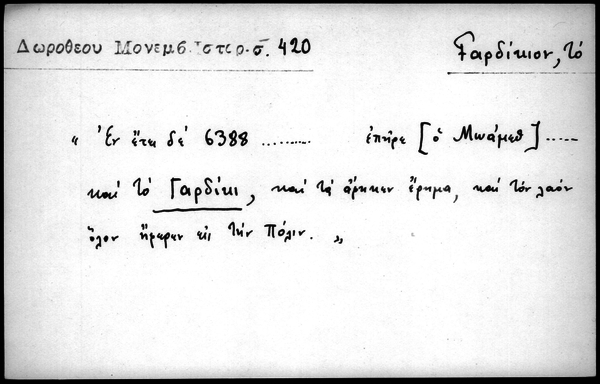 Δωροθεου Μονεμβ. Ιστορ. σ. 420
Γαρδίκιον, τὸ
“ Ἐν ἔτει δὲ 6388 .......... ἐπῆρε [ὁ Μωάμεθ] .....
καὶ τὸ Γαρδίκι, καὶ τὰ ἄφηκεν ἔρημα, καὶ τὸν λαὸν
ὅλον ἤφερεν εἰς τὴν Πόλιν. „